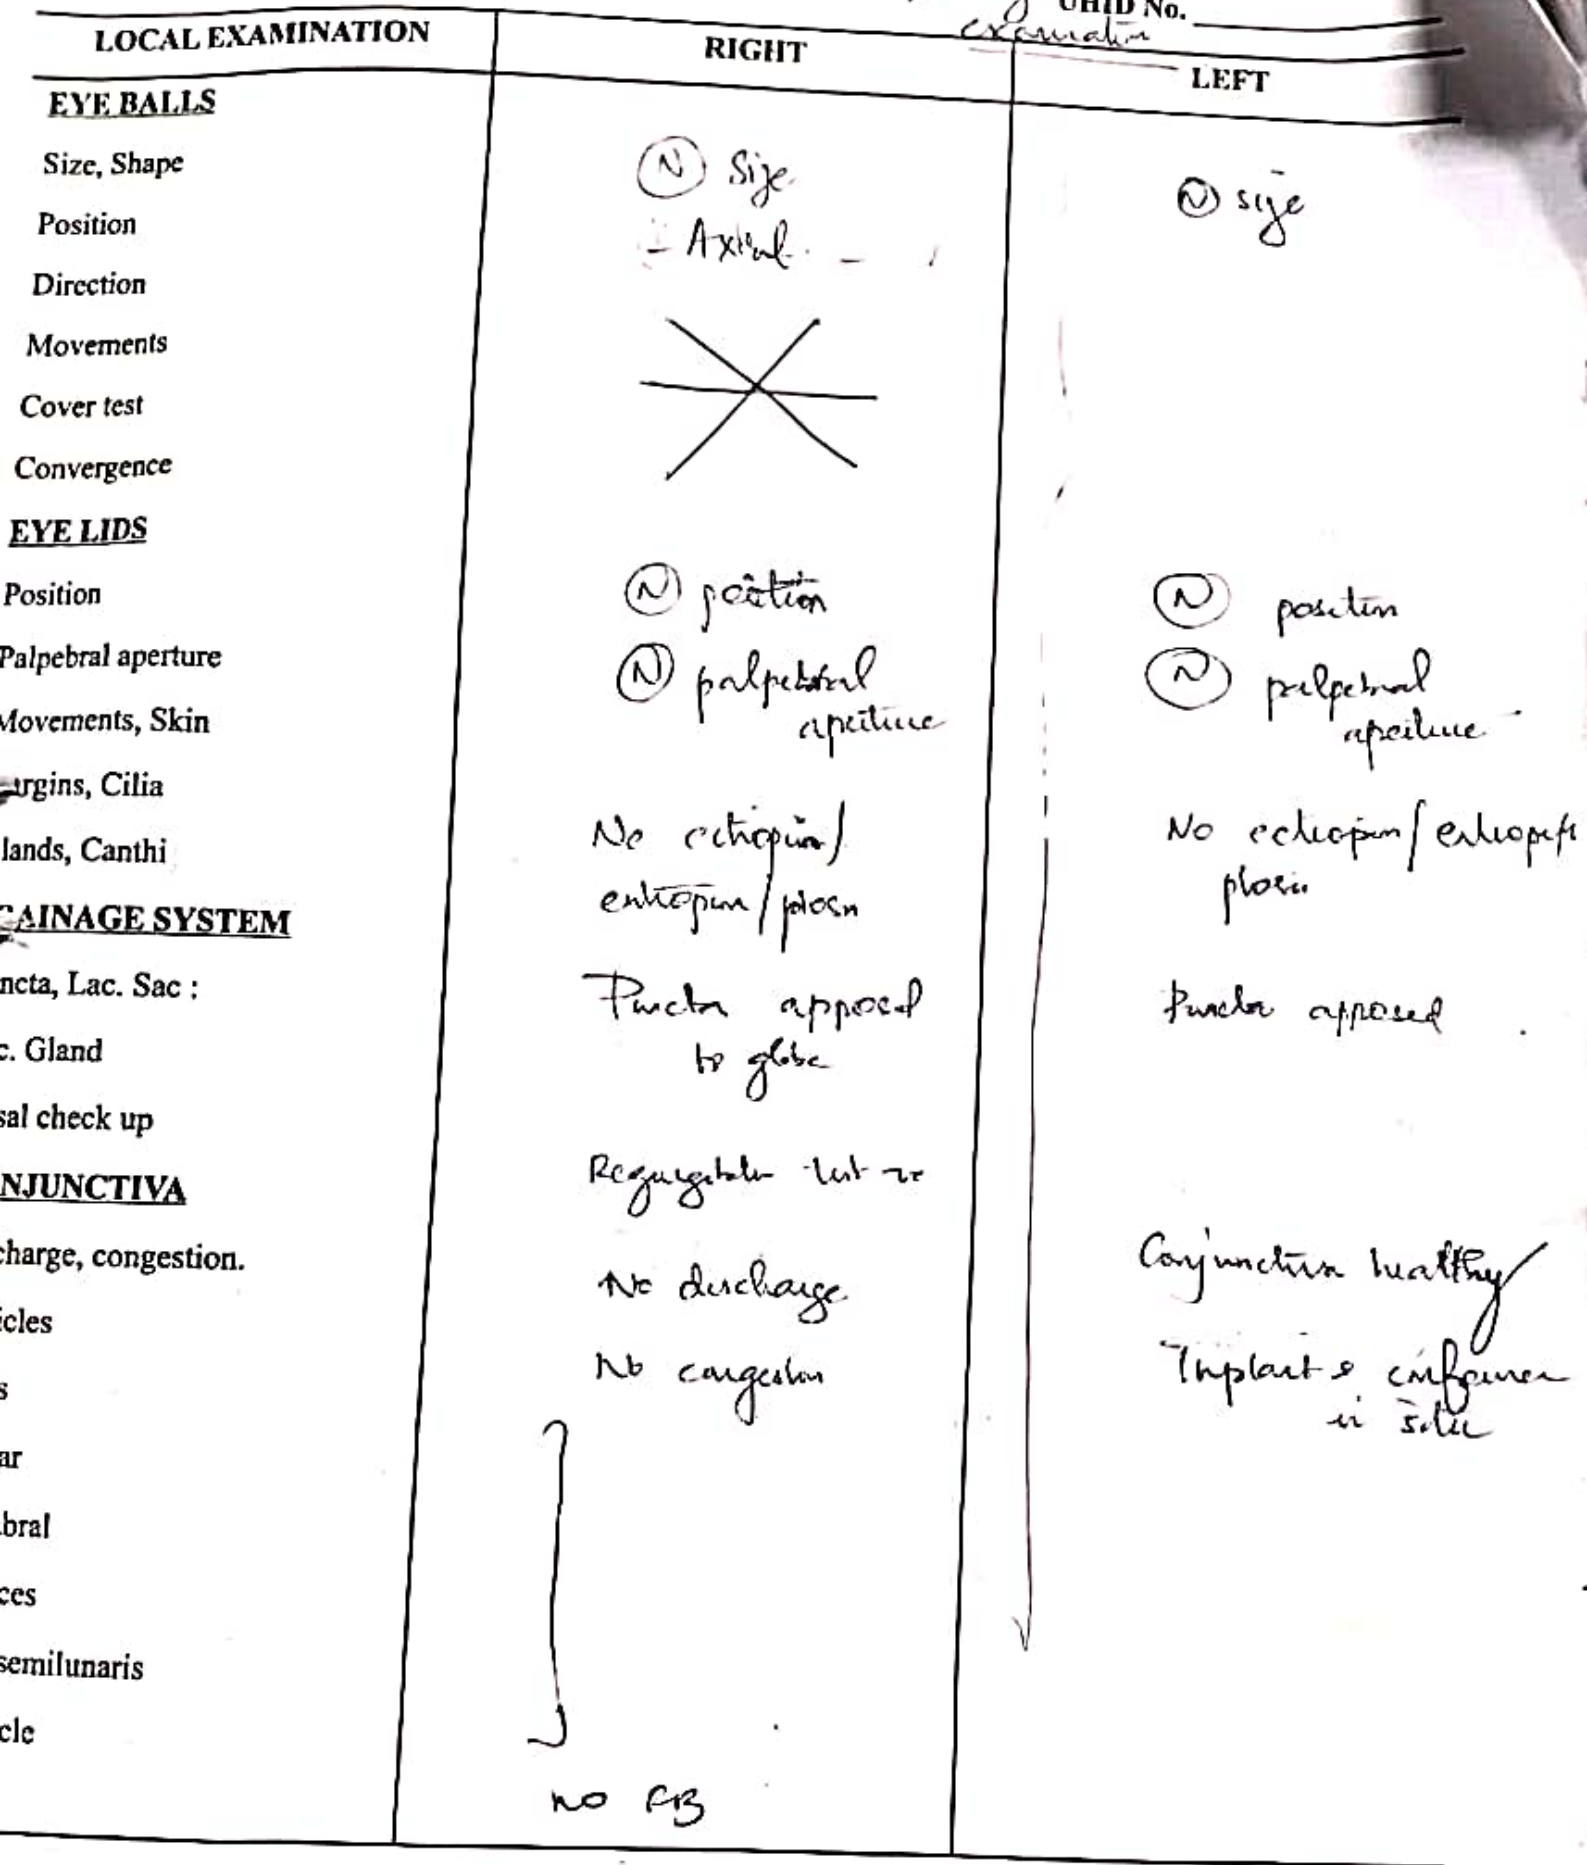 UHID No.
examination
LOCAL EXAMINATION RIGHT LEFT
EYE BALLS
Size, Shape (N) Size (N) size
Position - Axial -
Direction
Movements
Cover test
Convergence
EYE LIDS
Position (N) position (N) position
Palpebral aperture (N) palpebral (N) palpebral
aperture aperture
Movements, Skin
argins, Cilia
No ectropion/ No ectropion/entropion
lands, Canthi
entropion/ptosis ptosis
AINAGE SYSTEM
ncta, Lac. Sac : Puncta apposed Puncta apposed
to globe
c. Gland
sal check up
Regurgitation test -ve
NJUNCTIVA
charge, congestion. No discharge Conjunctiva healthy
icles
No congestion Implant & conformer
in situ
s
ar
bral
ces
semilunaris
cle
no FB